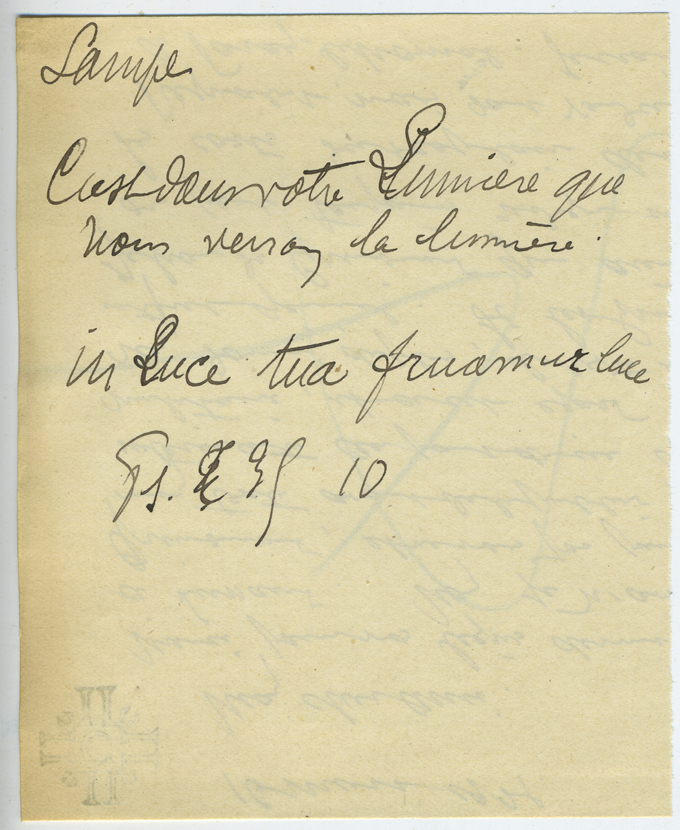 Lampe
C'est dans votre Lumière que
nous verrons la lumière.
in Luce tua fruamur luce
Ps. 35 10